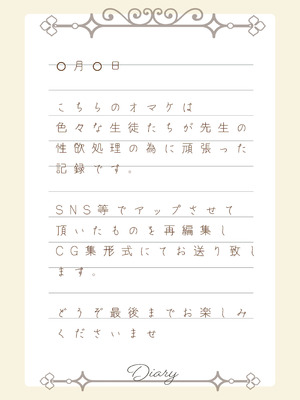 〇月〇日
こちらのオマケは
色々な生徒たちが先生の
性欲処理の為に頑張った
記録です。
SNS等でアップさせて
頂いたものを再編集し
CG集形式にてお送り致し
ます。
どうぞ最後までお楽しみ
くださいませ
Diary